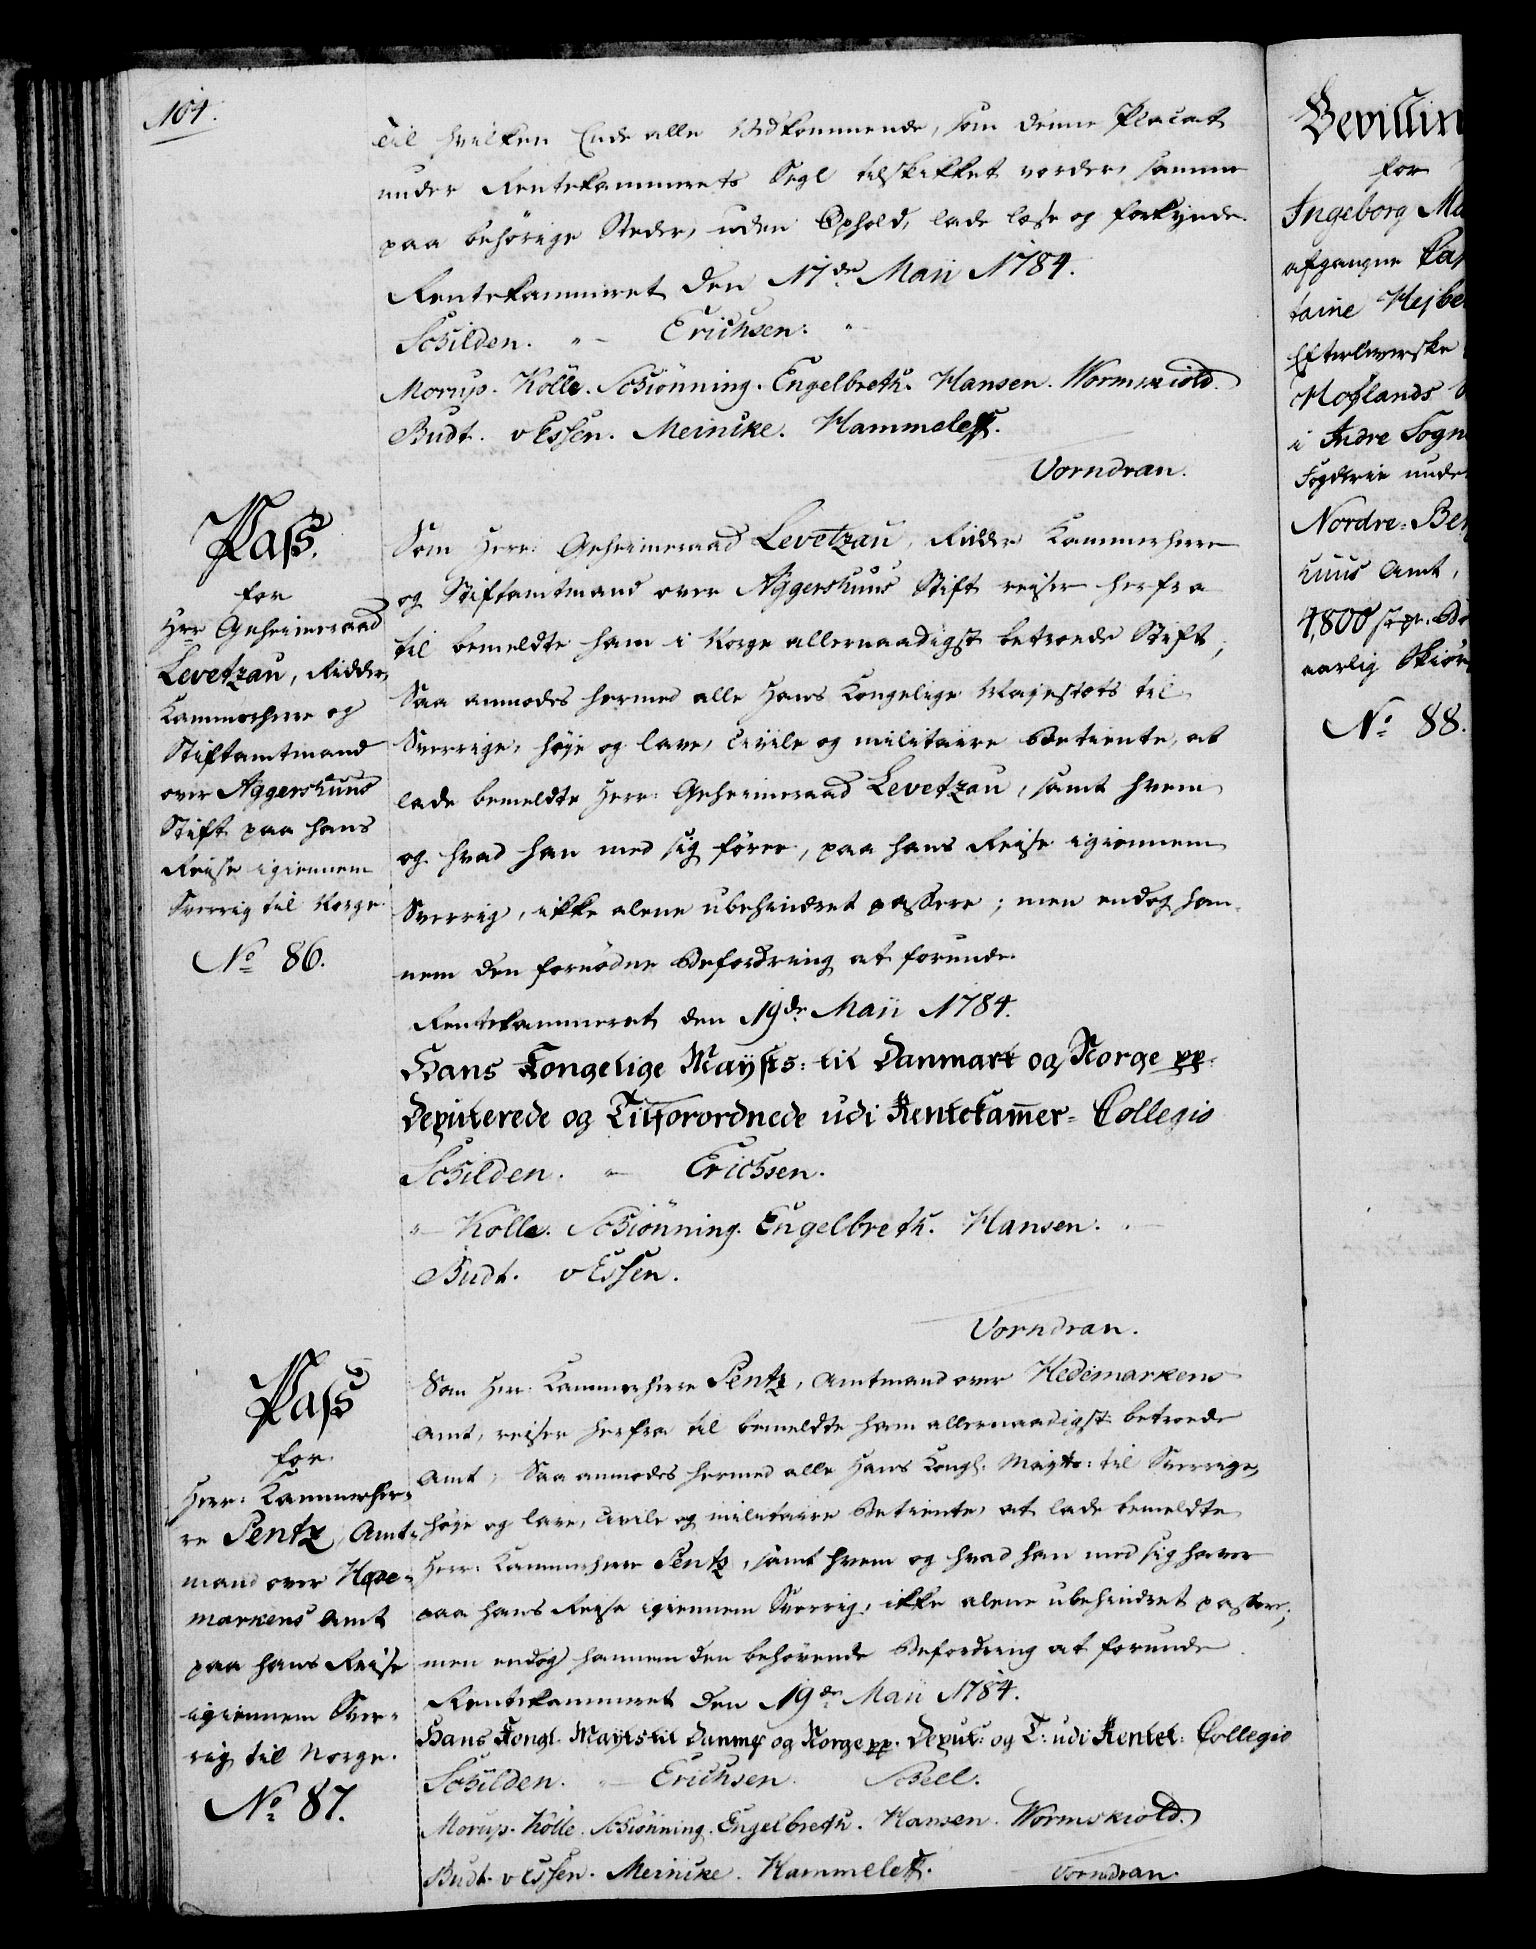 104.
til hvilken Ende alle Vedkommende, som denne Placat
under Rentekammerets Segl tilskikket vorder, samme
paa behörige Steder, uden Ophold, lade læse og forkynde.
Rentekammeret den 17de Maii 1784.
Schilden. " - Erichsen. "
Morup. Kölle. Schiönning. Engelbreth. Hansen. Wormskiold.
Budt. v Essen. Meinike. Hammeleff.
Vorndran.
Pass.
for
Herr Geheimeraad
Levetzau, Ridder,
Kammerherre og
Stiftamtmand
over Aggershuus
Stift paa hans
Reise igiennem
Sverrig til Norge
No 86.
Som Herr Geheimeraad Levetzau, Ridder Kammerherre
og Stiftamtmand over Aggershuus Stift reiser herfra
til bemeldte ham i Norge allernaadigst betroede Stift;
Saa anmodes hermed alle Hans Kongelige Majestæts til
Sverrige, höje og lave, civile og militaire Betiente, at
lade bemeldte Herr Geheimeraad Levetzau, samt hvem
og hvad han med sig förer, paa hans Reise igiennem
Sverrig, ikke alene ubehindret passere; men endog han-
nem den fornödne Befordring at forunde.
Rentekammeret den 19de Maii 1784.
Hans Kongelige Mayjsts: til Danmark og Norge pp.
Deputerede og Tilforordnede udi Rentekam̃er= Collegio
Schilden. " Erichsen.
" Kölle. Schiönning. Engelbreth. Hansen. "
Budt. v Essen.
Vorndran.
Pass
for
Herr: Kammerher-
re Pentz, Amt-
mand over Hede-
markens Amt
paa hans Reise
igiennem Sver-
rig til Norge.
No 87.
Som Herr: Kammerherre Pentz, Amtmand over Hedemarkens
Amt, reiser herfra til bemeldte ham allernaadigst betroede
Amt; Saa anmodes hermed alle Hans Kongl. Mayts: til Sverrige,
höje og lave, civile og militaire Betiente, at lade bemeldte
Herr: Kammerherre Pentz, samt hvem og hvad han med sig haver
paa hans Reise igiennem Sverrig, ikke alene ubehindret passere;
men endog hannem den behövende Befordring at forunde
Rentekammeret den 19de Maii 1784.
Hans Kongl. Mayts til Danmk og Norge pp. Deput: og T: udi Rentek: Collegio
Schilden. " Erichsen. Scheel.
Morup. Kölle. Schiönning. Engelbreth. Hansen. Wormskiold.
Budt. v Essen. Meinike. Hammeleff. Vorndran.
Bevillin
for
Ingeborg Ma
afgangne Cap
taine Hejbe
Efterleverske
Hoflands
i Indre Sogn
Fogderie unde
Nordre-Ber
huus Amt,
aarlig Skiör
No 88.